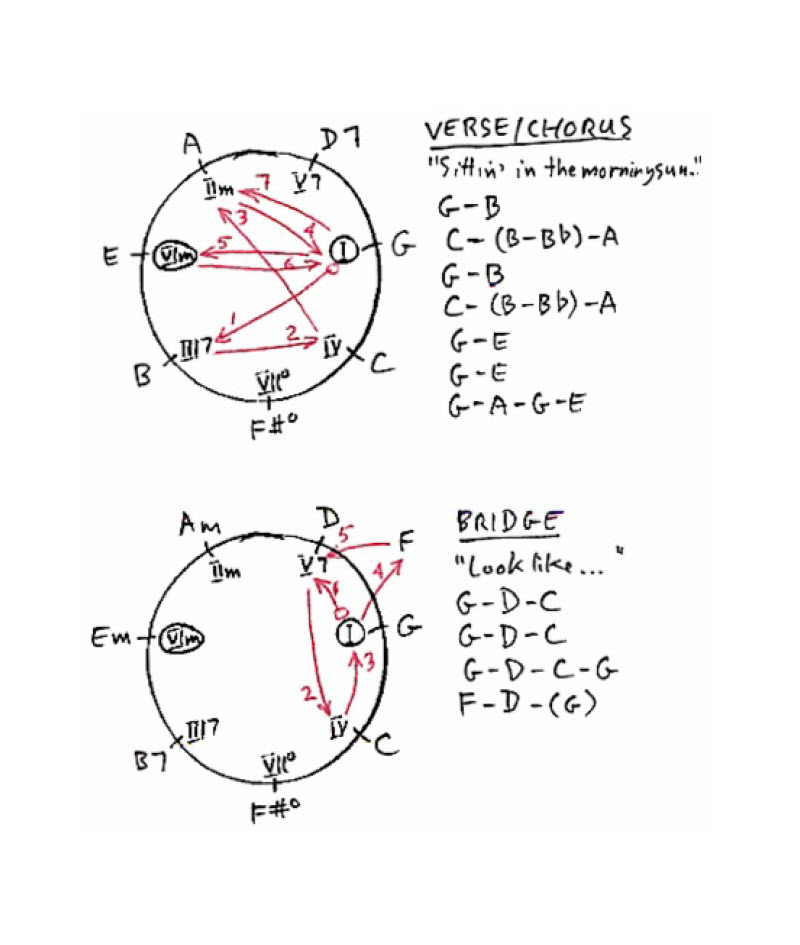 VERSE/CHORUS
"Sittin' in the morning sun."
G-B
C-(B-Bb)-A
G-B
C-(B-Bb)-A
G-E
G-E
G-A-G-E
A
D7
IIm
V7
7
3
4
E
VIm
5
6
I
G
1
2
B
III7
IV
C
VII°
F#°
BRIDGE
"Look like..."
G-D-C
G-D-C
G-D-C-G
F-D-(G)
Am
D
5
F
IIm
V7
4
1
Em
VIm
I
G
3
2
B7
III7
IV
C
VII°
F#°